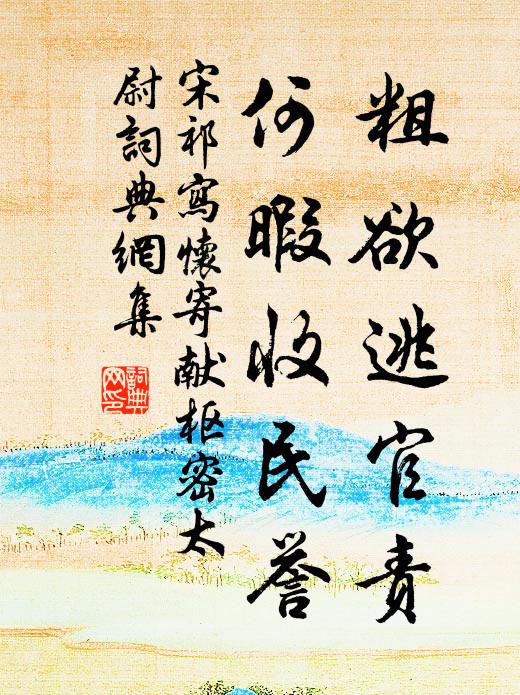 粗欲逃官責
何暇收民譽
宋祁寫懷寄献枢密太
尉詞典網集
詞典
网印